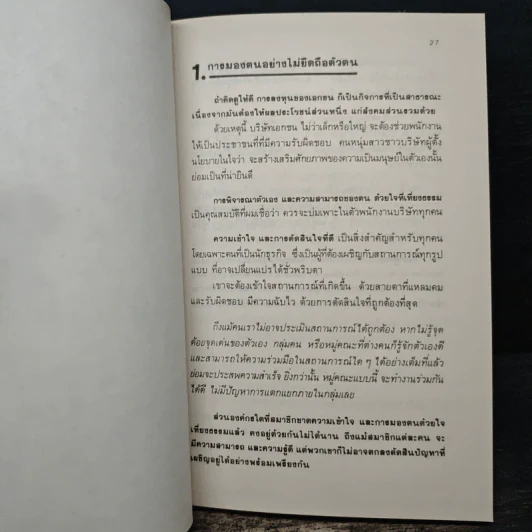 27
1. การมองตนอย่างไม่ยึดถือตัวตน
ถ้าคิดดูให้ดี การลงทุนของเอกชน ก็เป็นกิจการที่เป็นสาธารณะ
เนื่องจากมันต้องให้ผลประโยชน์ส่วนหนึ่ง แก่สังคมส่วนรวมด้วย
ด้วยเหตุนี้ บริษัทเอกชน ไม่ว่าเล็กหรือใหญ่ จะต้องช่วยพนักงาน
ให้เป็นประชาชนที่ดีมีความรับผิดชอบ คนหนุ่มสาวชาวบริษัทผู้ตั้ง
นโยบายในใจว่า จะสร้างเสริมศักยภาพของความเป็นมนุษย์ในตัวเองนั้น
ย่อมเป็นที่น่ายินดี
การพิจารณาตัวเอง และความสามารถของตน ด้วยใจที่เที่ยงธรรม
เป็นคุณสมบัติที่ผมเชื่อว่า ควรจะบ่มเพาะในตัวพนักงานบริษัททุกคน
ความเข้าใจ และการตัดสินใจที่ดี เป็นสิ่งสำคัญสำหรับทุกคน
โดยเฉพาะคนที่เป็นนักธุรกิจ ซึ่งเป็นผู้ที่ต้องเผชิญกับสถานการณ์ทุกรูป
แบบ ที่อาจเปลี่ยนแปรได้ชั่วพริบตา
เขาจะต้องเข้าใจสถานการณ์ที่เกิดขึ้น ด้วยสายตาที่แหลมคม
และรับผิดชอบ มีความฉับไว ด้วยการตัดสินใจที่ถูกต้องที่สุด
ถึงแม้คนเราไม่อาจประเมินสถานการณ์ได้ถูกต้อง หากไม่รู้จุด
ด้อยจุดเด่นของตัวเอง กลุ่มคน หรือหมู่คณะที่ต่างคนก็รู้จักตัวเองดี
และสามารถให้ความร่วมมือในสถานการณ์ใด ๆ ได้อย่างเต็มที่แล้ว
ย่อมจะประสพความสำเร็จ ยิ่งกว่านั้น หมู่คณะแบบนี้ จะทำงานร่วมกัน
ได้ดี ไม่มีปัญหาการแตกแยกภายในกลุ่มเลย
ส่วนองค์กรใดที่สมาชิกขาดความเข้าใจ และการมองตนด้วยใจ
เที่ยงธรรมแล้ว คงอยู่ด้วยกันไม่ได้นาน ถึงแม้สมาชิกแต่ละคน จะ
มีความสามารถ และความรู้ดี แต่พวกเขาก็ไม่อาจตกลงตัดสินปัญหาที่
เผชิญอยู่ได้อย่างพร้อมเพรียงกัน